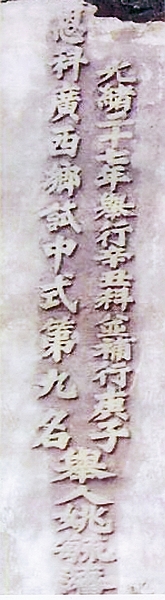 光緒二十七年舉行辛丑科並補行庚子
恩科廣西鄉試中式第九名舉人姚